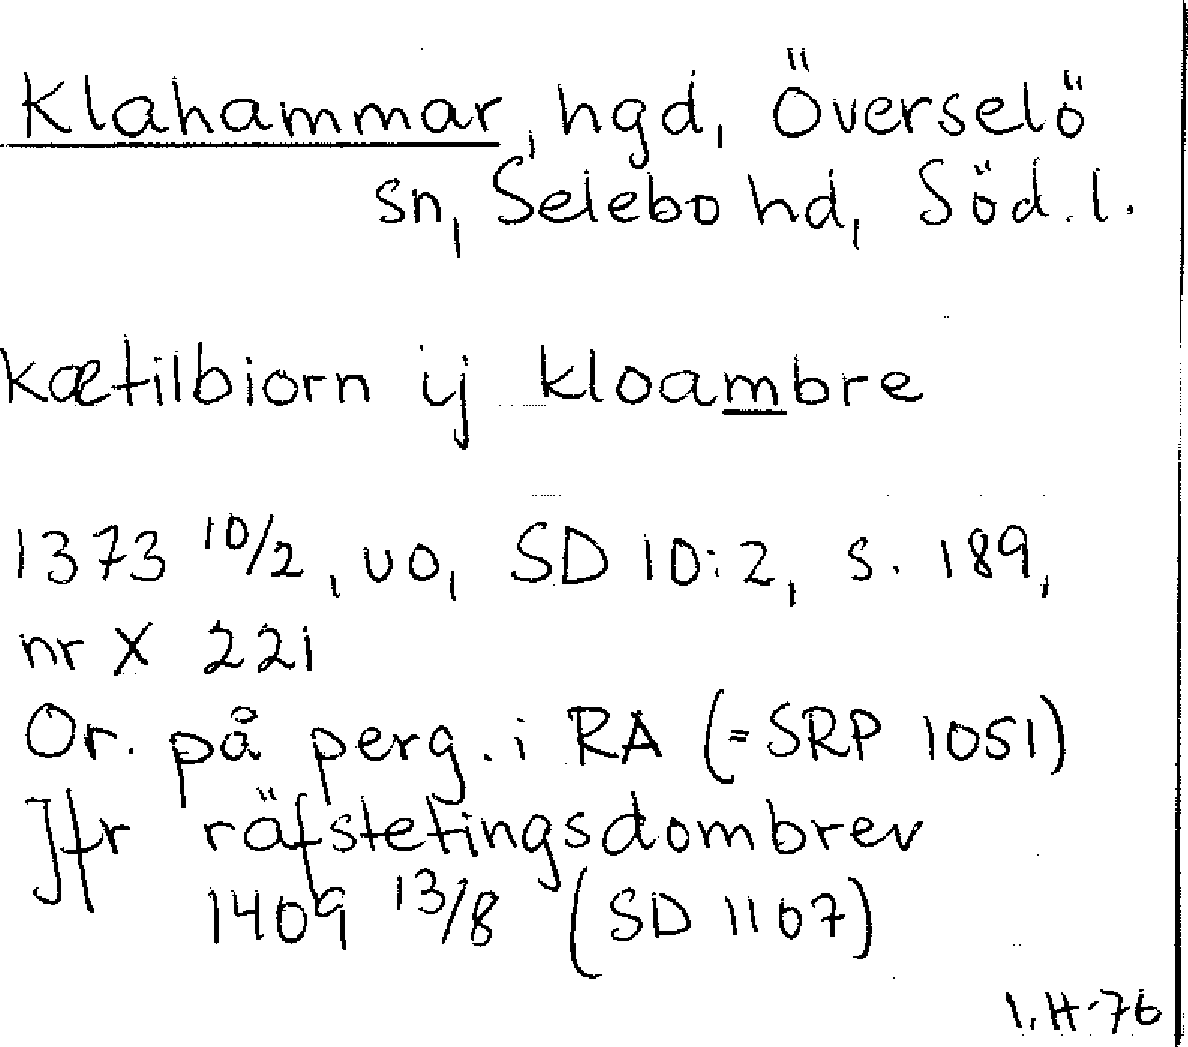 Klahammar, hgd, Överselö
sn, Selebo hd, Söd. l.
kætilbiorn ij kloambre
1373 10/2, uo, SD 10:2, s. 189,
nr X 221
Or. på perg. i RA (=SRP 1051)
Jfr räfstetingsdombrev
1409 13/8 (SD 1107)
I.H-76